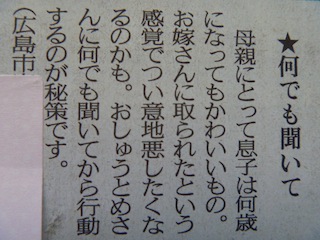 ★何でも聞いて
母親にとって息子は何歳
になってもかわいいもの。
お嫁さんに取られたという
感覚でつい意地悪したくな
るのかも。おしゅうとめさ
んに何でも聞いてから行動
するのが秘策です。
（広島市